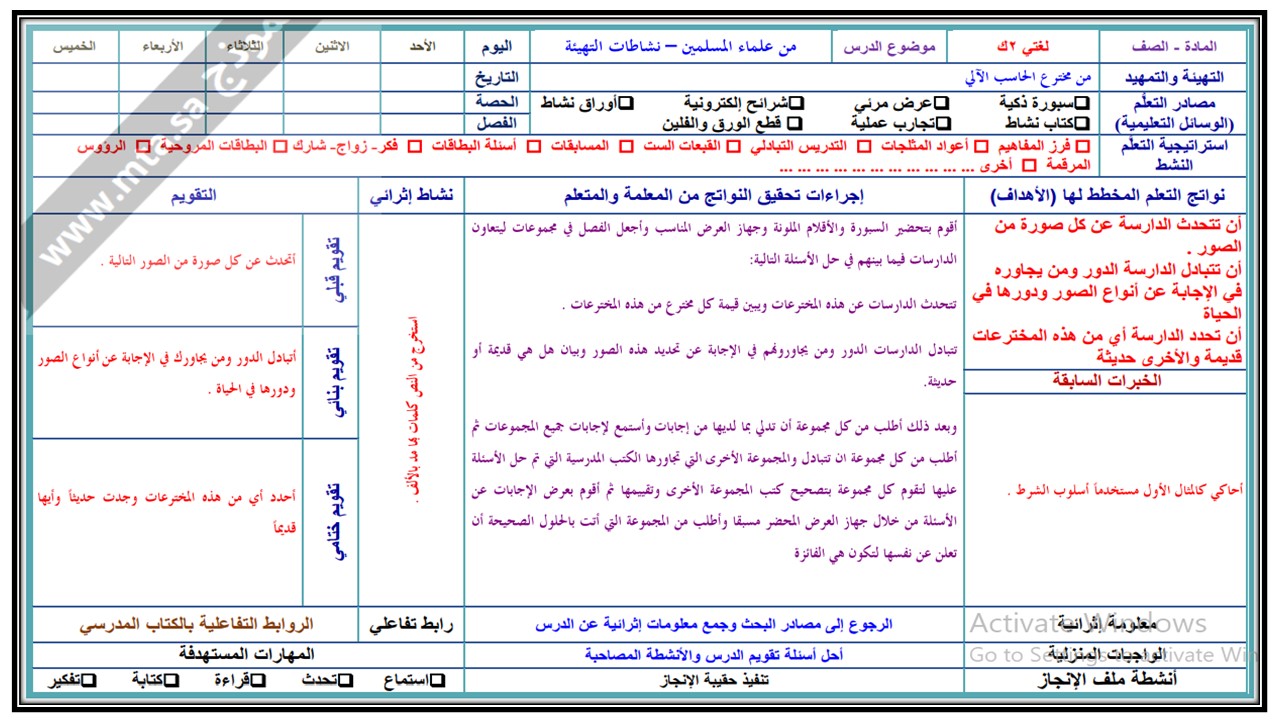 المادة - الصف لغتي ٢ك موضوع الدرس من علماء المسلمين – نشاطات التهيئة اليوم الأحد الاثنين الثلاثاء الأربعاء الخميس
التهيئة والتمهيد من مخترع الحاسب الآلي التاريخ
مصادر التعلّم (الوسائل التعليمية)
❑سبورة ذكية ❑عرض مرئي ❑شرائح إلكترونية ❑أوراق نشاط الحصة
❑كتاب نشاط ❑تجارب عملية ❑ قطع الورق والفلين الفصل
استراتيجية التعلّم النشط
□ فرز المفاهيم □ أعواد المثلجات □ التدريس التبادلي □ القبعات الست □ المسابقات □ أسئلة البطاقات □ فكر- زواج- شارك □ البطاقات المروحية □ الرؤوس
المرقمة □ أخرى ... ... ... ... ... ... ... ... ... ... ...
نواتج التعلم المخطط لها (الأهداف) إجراءات تحقيق النواتج من المعلمة والمتعلم نشاط إثرائي التقويم
أن تتحدث الدارسة عن كل صورة من
الصور .
أن تتبادل الدارسة الدور ومن يجاوره
في الإجابة عن أنواع الصور ودورها في
الحياة
أن تحدد الدارسة أي من هذه المخترعات
قديمة والأخرى حديثة
الخبرات السابقة
أحاكي كالمثال الأول مستخدماً أسلوب الشرط .
أقوم بتحضير السبورة والأقلام الملونة وجهاز العرض المناسب وأجعل الفصل في مجموعات ليتعاون
الدارسات فيما بينهم في حل الأسئلة التالية:
تتحدث الدارسات عن هذه المخترعات ويبين قيمة كل مخترع من هذه المخترعات .
تتبادل الدارسات الدور ومن يجاورونهم في الإجابة عن تحديد هذه الصور وبيان هل هي قديمة أو
حديثة.
وبعد ذلك أطلب من كل مجموعة أن تدلي بما لديها من إجابات وأستمع لإجابات جميع المجموعات ثم
أطلب من كل مجموعة ان تتبادل والمجموعة الأخرى التي تجاورها الكتب المدرسية التي تم حل الأسئلة
عليها لتقوم كل مجموعة بتصحيح كتب المجموعة الأخرى وتقييمها ثم أقوم بعرض الإجابات عن
الأسئلة من خلال جهاز العرض المحضر مسبقا وأطلب من المجموعة التي أتت بالحلول الصحيحة أن
تعلن عن نفسها لتكون هي الفائزة
استخرج من النص كلمات بها مد بالألف .
تقويم قبلي
أتحدث عن كل صورة من الصور التالية .
تقويم بنائي
أتبادل الدور ومن يجاورك في الإجابة عن أنواع الصور
ودورها في الحياة .
تقويم ختامي
أحدد أي من هذه المخترعات وجدت حديثاً وأيها
قديماً
معلومة إثرائية الرجوع إلى مصادر البحث وجمع معلومات إثرائية عن الدرس رابط تفاعلي الروابط التفاعلية بالكتاب المدرسي
الواجبات المنزلية أحل أسئلة تقويم الدرس والأنشطة المصاحبة المهارات المستهدفة
أنشطة ملف الإنجاز تنفيذ حقيبة الإنجاز ❑استماع ❑تحدث ❑قراءة ❑كتابة ❑تفكير
Activate Windows
Go to Settings to activate Win
نموذج www.mta.sa